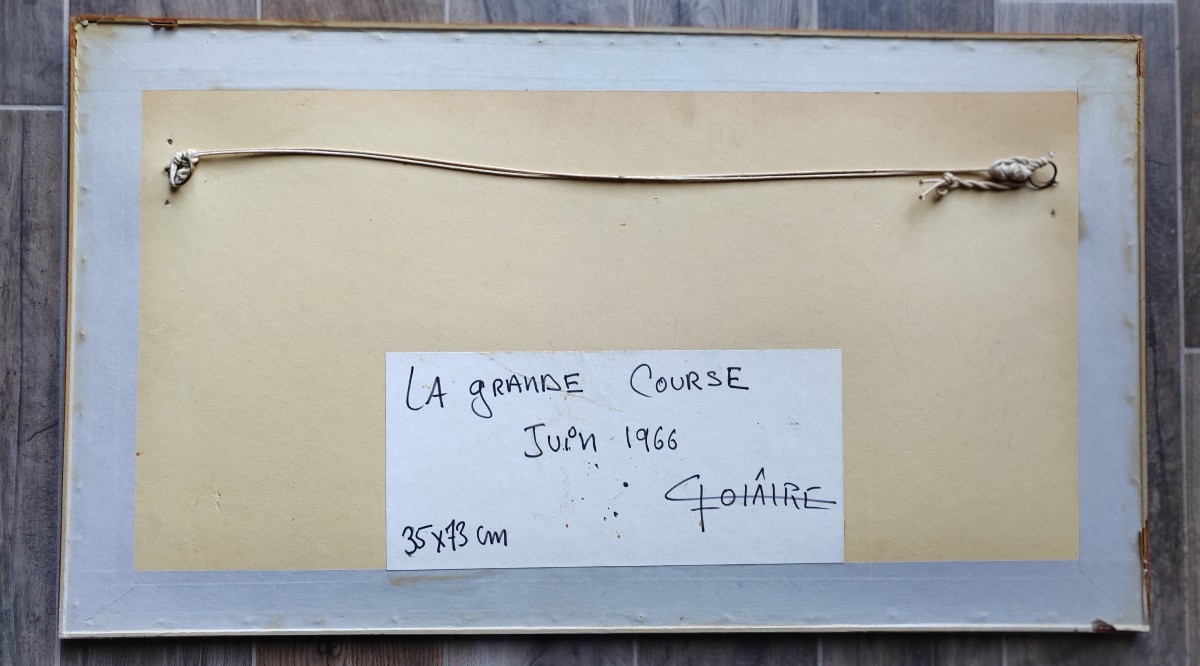 LA GRANDE COURSE
Juin 1966
35x73 cm